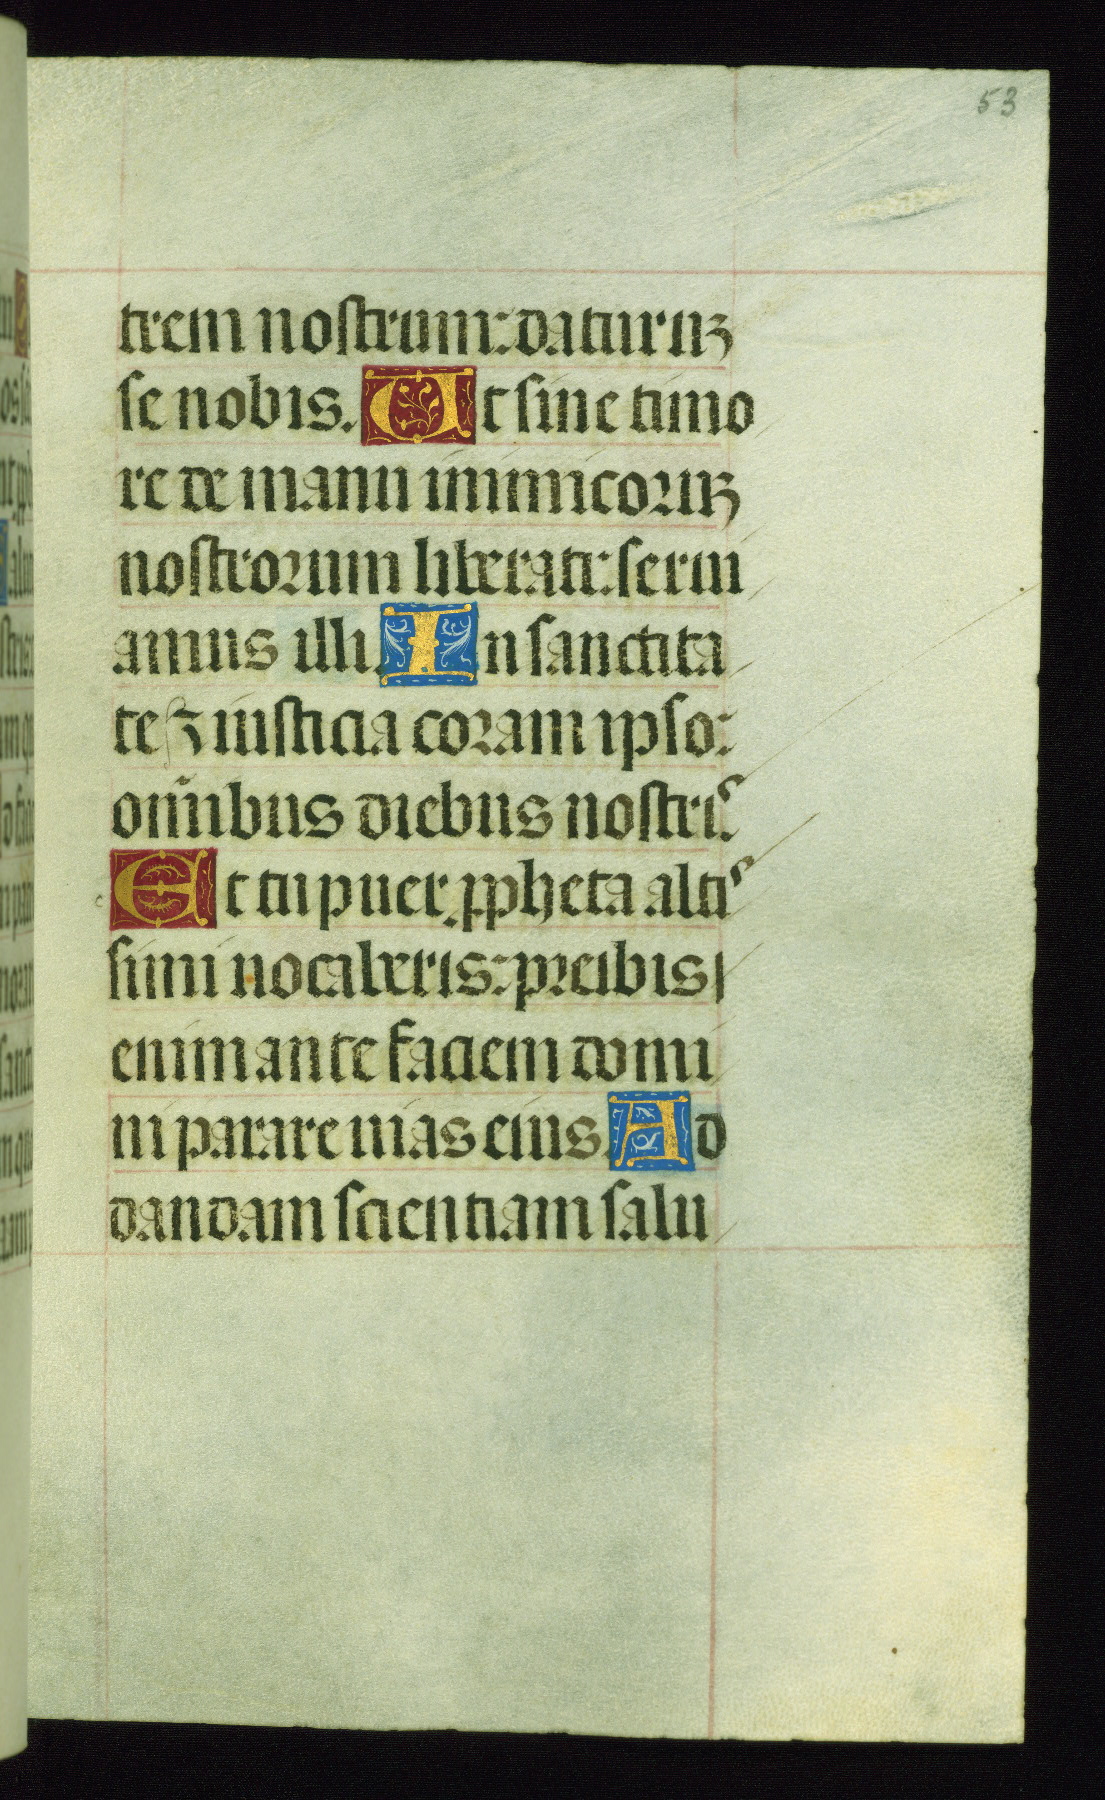 53
trem nostrum: daturuꝫ
se nobis. Ut sine timo
re de manu inimicoruꝫ
nostrorum liberati: serui
amus illi. In sanctita
te ⁊ iusticia coram ipso:
omībus diebus nostris.
Et tu puer ꝓpheta altis
simi vocaberis: preibis
enim ante faciem domi
ni parare vias eius. Ad
dandam scientiam salu